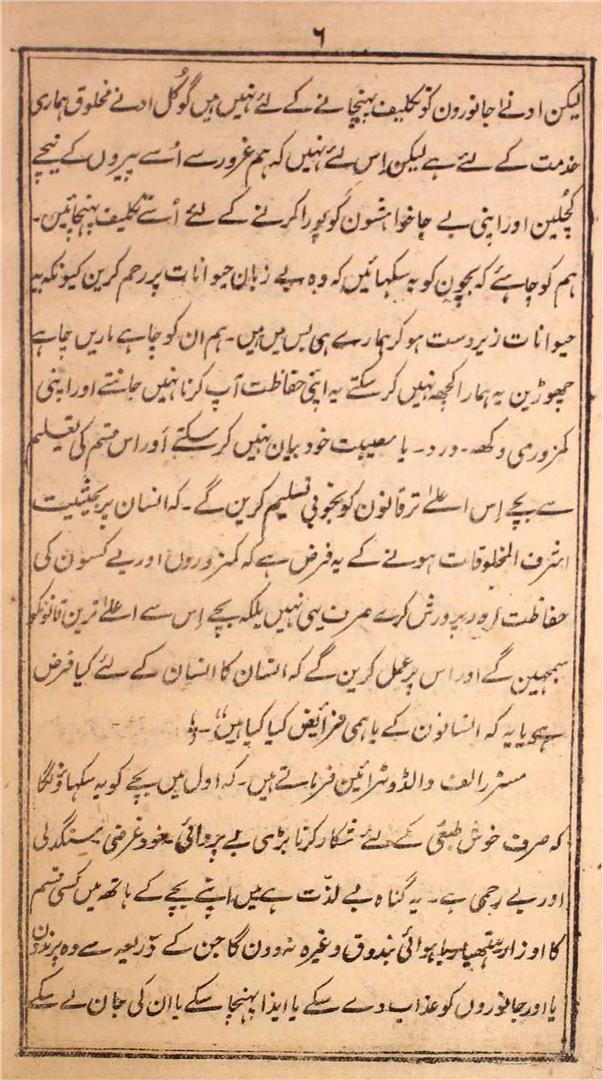 ۶
لیکن ادنےٰ جانورون کو تکلیف پہنچانے کے لئے نہیں ہیں گو کُل ادنےٰ مخلوق ہماری
خدمت کے لئے ہے لیکن اِس لئے نہیں کہ ہم غرور سے اُسے پیروں کے نیچے
کچلین اور اپنی بے جا خواہشون کو پورا کرنے کے لئے اُسے تکلیف پہنچائیں۔
ہم کو چاہئے کہ بچون کو یہ سکھائیں کہ وہ بے زبان حیوانات پر رحم کرین کیونکہ یہ
حیوانات زیردست ہو کر ہمارے ہی بس میں ہیں۔ ہم ان کو چاہے ماریں چاہے
چھوڑین یہ ہمارا کچھ نہیں کر سکتے یہ اپنی حفاظت آپ کرنا نہیں جانتے اور اپنی
کمزوری دکھ۔ درد۔ یا مصیبت خود بیان نہیں کر سکتے اور اس قسم کی تعلیم
سے بچے اِس اعلےٰ تر قانون کو بخوبی تسلیم کرین گے۔ کہ انسان پر بحیثیت
اشرف المخلوقات ہونے کے یہ فرض ہے کہ کمزوروں اور بے کسون کی
حفاظت اور پرورش کرے صرف یہی نہیں بلکہ بچے اِس سے اعلےٰ ترین قانون کو
سمجھین گے اور اس پر عمل کرین گے کہ انسان کا انسان کے لئے کیا فرض
ہے یا یہ کہ انسانون کے باہمی فرائض کیا کیا ہیں“۔
مسٹر رالف والڈو ٹرائین فرماتے ہیں۔ کہ اول میں بچے کو یہ سکھاؤنگا
کہ صرف خوش طبعی کے لئے شکار کرنا بڑی بے پروائی۔ خود غرضی۔ سنگدلی
اور بے رحمی ہے۔ یہ گناہ بے لذّت ہے میں اپنے بچے کے ہاتھ میں کسی قسم
کا اوزار ہتھیار یا ہوائی بندوق وغیرہ نہ دون گا جن کے ذریعہ سے وہ پرندون
یا اور جانوروں کو عذاب دے سکے یا ایذا پہنچا سکے یا ان کی جان لے سکے